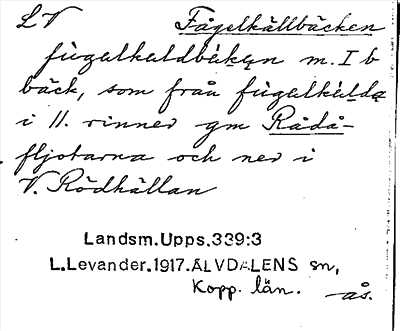 LV Fågelkällbäcken
fùgalkaldbę́kęn m. I b
bäck, som från fùgalkę́lda
i 11. rinner gm Rådå-
fljotarna och ner i
V. Rödhällan
Landsm.Upps.339:3
L.Levander.1917.ÄLVDALENS sn,
Kopp. län.
-ås.